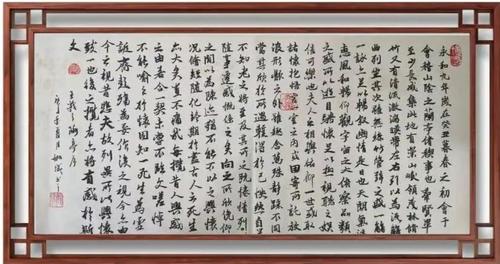 永和九年歲在癸丑暮春之初會于
會稽山陰之蘭亭脩禊事也羣賢畢
至少長咸集此地有崇山峻領茂林脩
竹又有清流激湍映帶左右引以為流觴
曲水列坐其次雖無絲竹管弦之盛一觴
一詠亦足以暢敘幽情是日也天朗氣清
惠風和暢仰觀宇宙之大俯察品類
之盛所以遊目騁懷足以極視聽之娛
信可樂也夫人之相與俯仰一世或取
諸懷抱悟言一室之內或因寄所託放
浪形骸之外雖趣舍萬殊靜躁不同
當其欣於所遇暫得於己快然自足
不知老之將至及其所之既惓情
隨事遷感慨係之矣向之所欣俛仰
之閒以為陳迹猶不能不以之興懷
況脩短隨化終期於盡古人云死生
亦大矣豈不痛哉每攬昔人興感
之由若合一契未嘗不臨文嗟悼
不能喻之於懷固知一死生為虛
誕齊彭殤為妄作後之視今亦由
今之視昔悲夫故列
所以興懷其
致一也後之攬者亦將有感於斯
文
王羲之蘭亭序